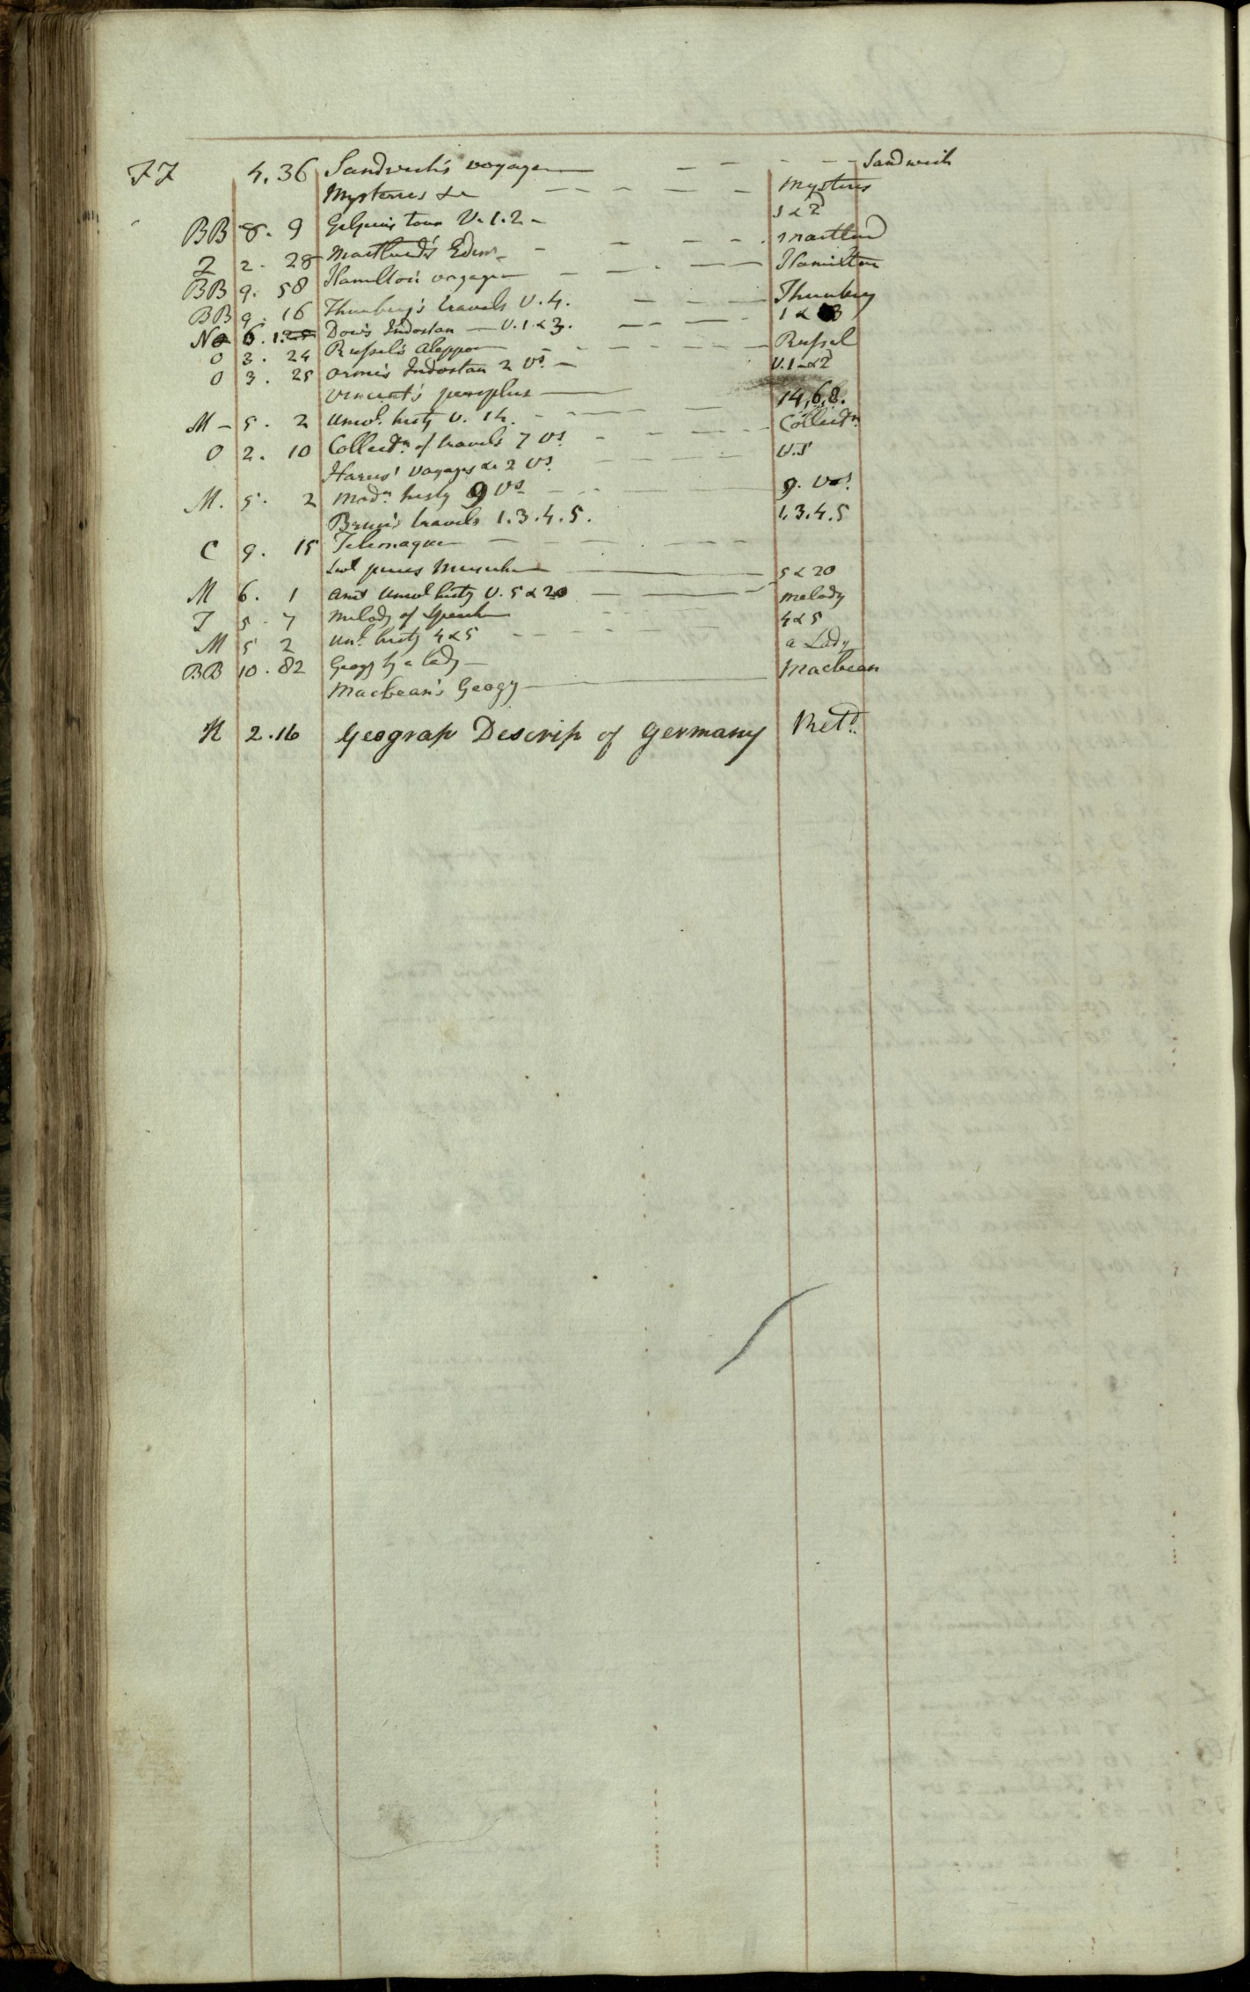 FF 4.36 Sandwich's voyage — — — — Sandwich
Mysteries &c — — — — Mysteries
BB 8. 9 Gilpin's tour V. 1. 2 - 1 & 2
F 2. 28 Maitland's Edinr - Maitland
BB 9. 58 Hamilton's voyage — — — Hamilton
BB 9. 16 Thunberg's travels V. 4. — — Thunberg
6. 1. Dow's Indostan — V. 1. & 3. 1 & 3
O 3. 24 Russel's Aleppo — Russel
O 3. 25 Orme's Indostan 2 Vs. — V. 1 & 2
Vincent's periplus —
M - 5. 2 Univl. histy V. 14. - 14, 6, 8.
O 2. 10 Collectn. of travels 7 Vs. Collectn.
Harris' Voyages &c 2 Vs. V. 5
M. 5. 2 Modn. histy 9 Vs. 9. Vos.
Bruce's travels 1. 3. 4. 5. 1. 3. 4. 5
C 9. 15 Telemaque — — —
M 6. 1 Ant Univl histy V. 5 & 20 — 5 & 20
F 5. 7 Melody of Speech melody
M 5 2 Unl. histy 4 & 5 4 & 5
BB 10. 82 Geogy by a lady — a Lady
Macbean's Geogy — Macbean
N 2.16 Geograp Descrip of Germany Retd.